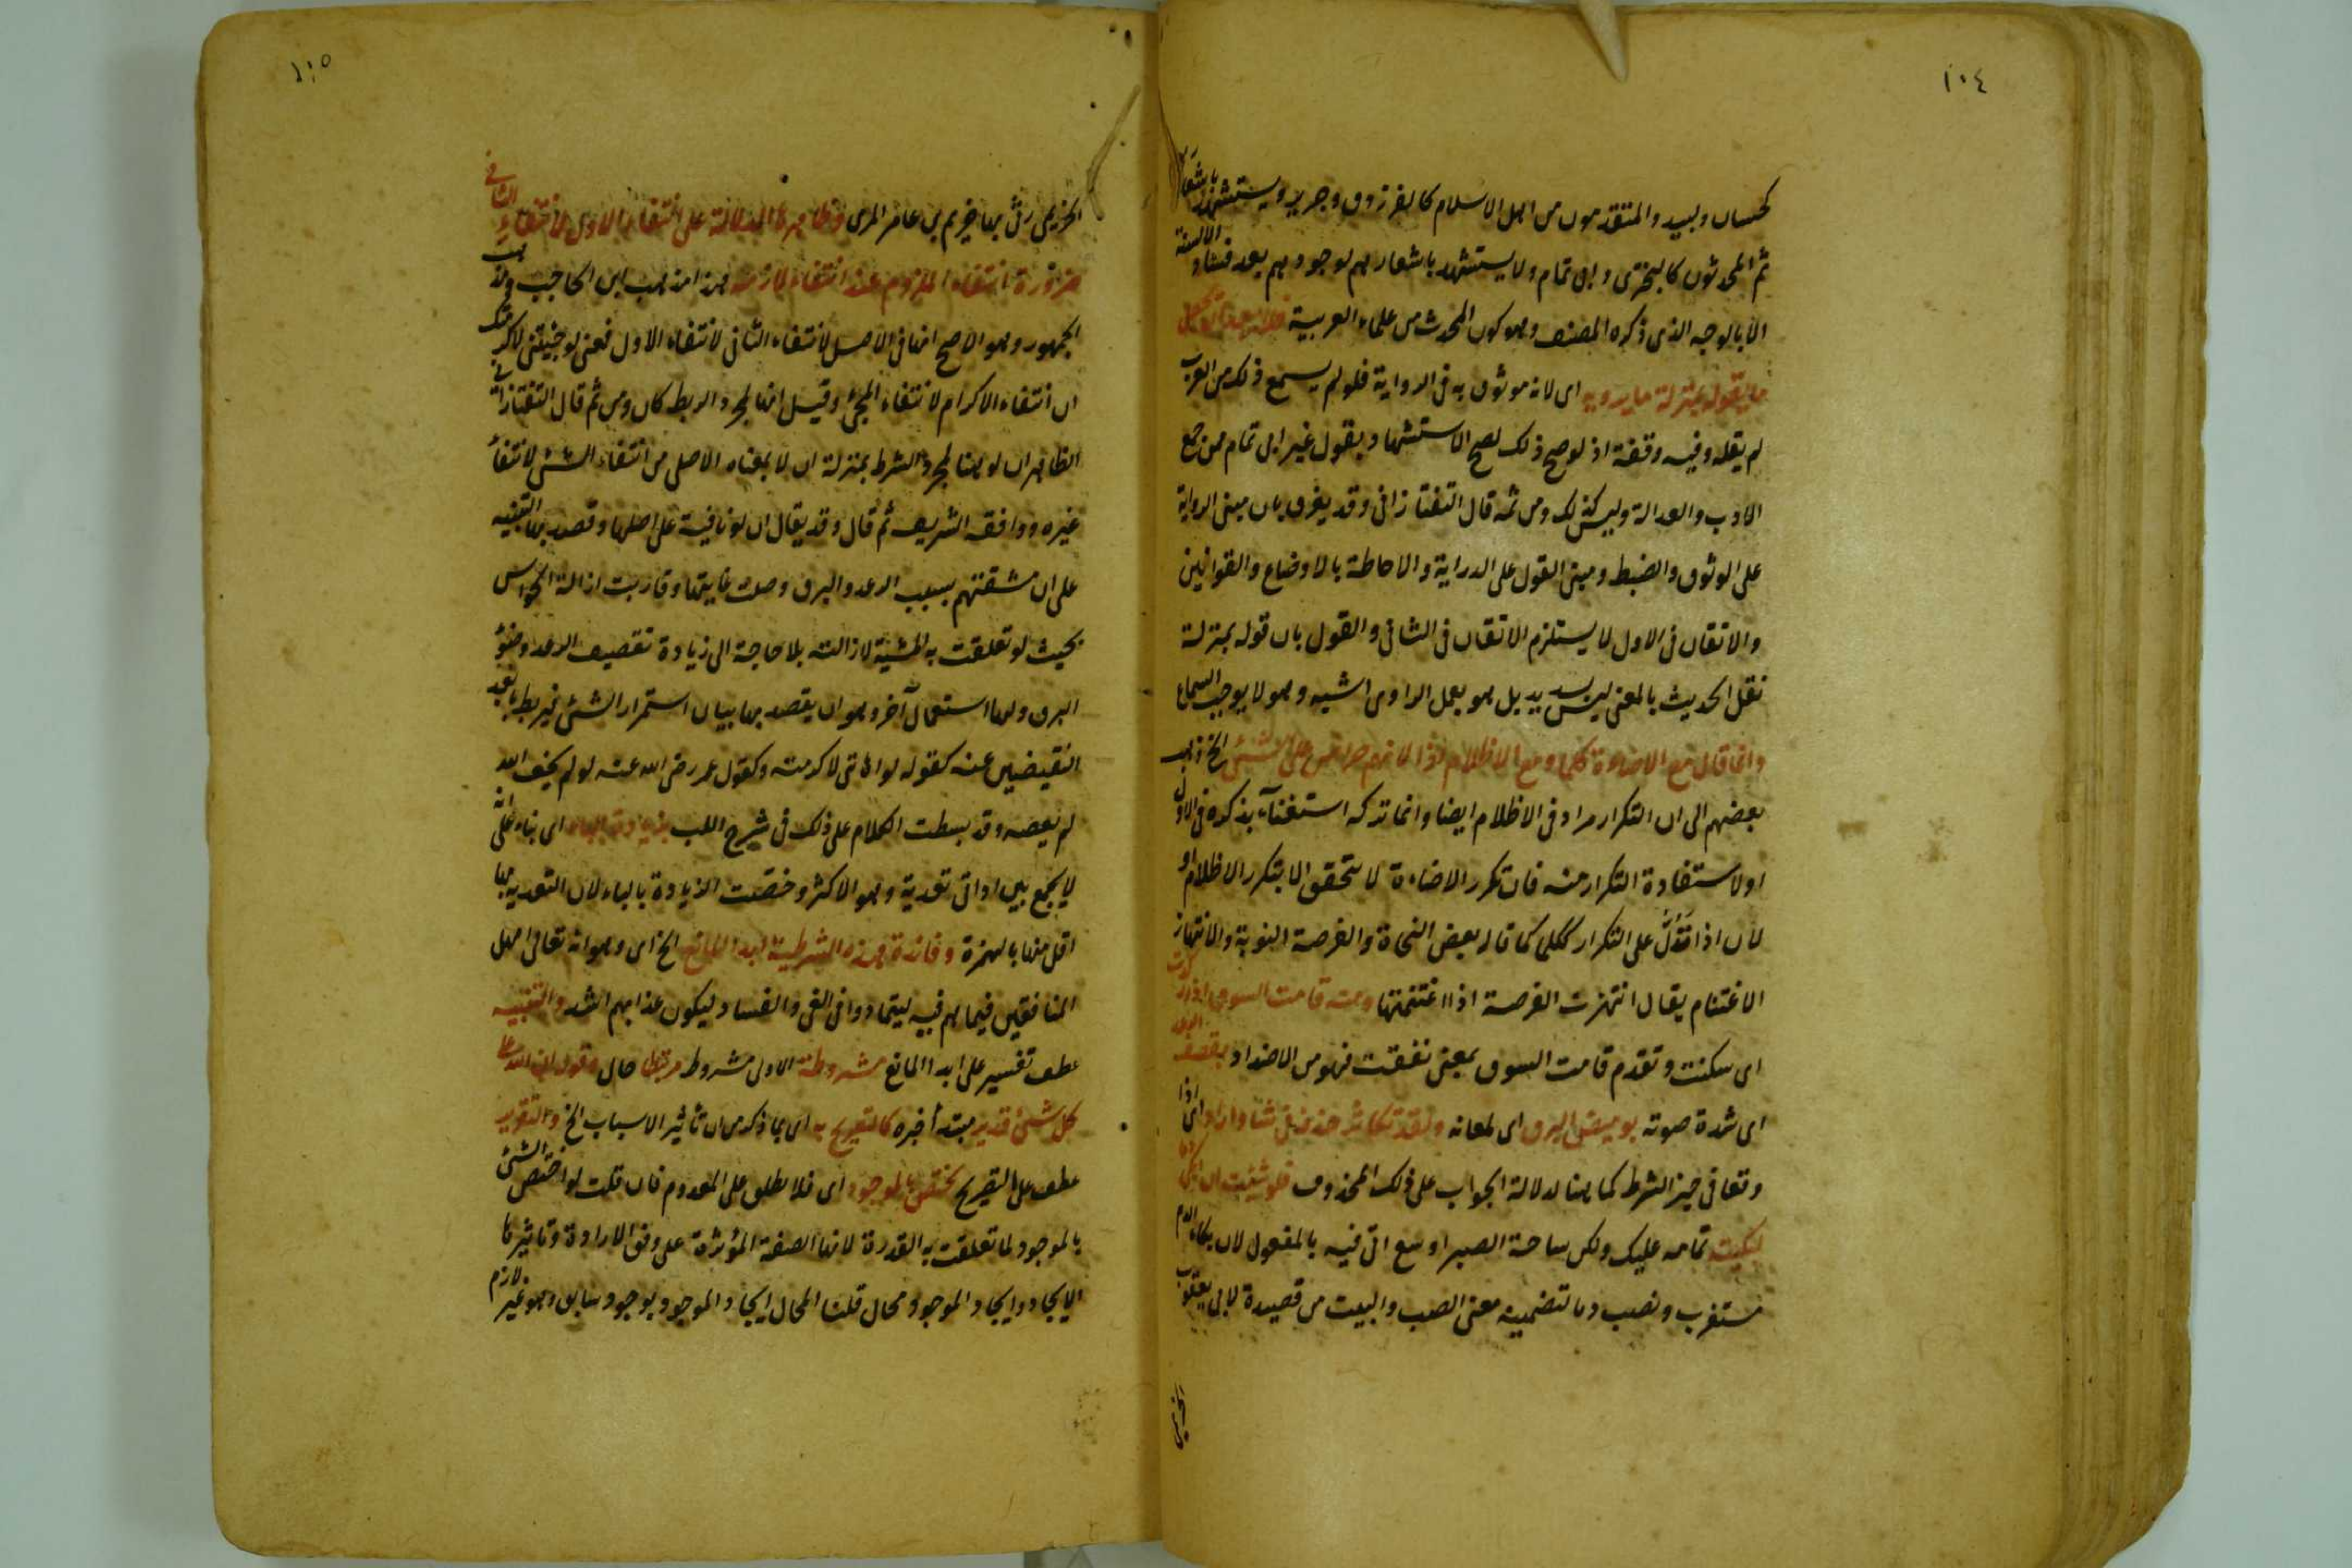 ١٠٤
كحسان ولبيد والمتقدمون من اهل الاسلام كالفرزدق وجرير ويستشهد باشعارهم
ثم المحدثون كالبحترى وابى تمام ولا يستشهد باشعارهم لوجودهم بعد فساد الالسنة
الا بالوجه الذى ذكره المصنف وهو كون المحدث من علماء العربية فلا يبعد ان يجعل
ما يقوله بمنزلة ما يرويه اى لانه موثوق به فى الرواية فلو لم يسمع ذلك من العرب
لم يقله وفيه وقفة اذ لو صح ذلك لصح الاستشهاد بقول غير ابى تمام ممن جمع
الادب والعدالة وليس كذلك ومن ثمه قال التفتازانى وقد يفرق بان مبنى الرواية
على الوثوق والضبط ومبنى القول على الدراية والاحاطة بالاوضاع والقوانين
والاتقان فى الاول لا يستلزم الاتقان فى الثانى والقول بان قوله بمنزلة
نقل الحديث بالمعنى ليس بسديد بل هو بعمل الراوى اشبه وهو لا يوجب السماع
وانما قال مع الاضاءة كلما ومع الاظلام اذا لانهم حراص على المشى الخ ذهب
بعضهم الى ان التكرار مراد فى الاظلام ايضا وانما تركه استغناء بذكره فى الاول
او لاستفادة التكرار منه فان تكرر الاضاءة لا يتحقق الا بتكرر الاظلام او
لان اذا تدل على التكرار ككلما كما قاله بعض النحاة والفرصة النوبة والانتهاز
الاغتنام يقال انتهزت الفرصة اذا اغتنمتها ومنه قامت السوق اذا ركدت
اى سكنت وتقدم قامت السوق بمعنى نفقت فهو من الاضداد بقصف الرعد
اى شدة صوته بوميض البرق اى لمعانه ولقد تكاثر حذفه فى شاء واراد اى اذا
وقعا فى حيز الشرط كما هنا لدلالة الجواب على ذلك المحذوف فلو شئت ان ابكى دما
لبكيته تمامه عليك ولكن ساحة الصبر اوسع اتى فيه بالمفعول لان بكاء الدم
مستغرب ونصب دما لتضمينه معنى الصب والبيت من قصيدة لابى يعقوب
الخزيمى
١٠٥
الخزيمى رثى بها خزيم بن عامر المرى وظاهرها الدلالة على انتفاء الاول لانتفاء الثانى
ضرورة انتفاء الملزوم عند انتفاء لازمه هذا مذهب ابن الحاجب ومذهب
الجمهور وهو الاصح انها فى الاصل لانتفاء الثانى لانتفاء الاول فمعنى لو جئتنى لاكرمتك
ان انتفاء الاكرام لانتفاء المجئ وقيل انها لمجرد الربط كان ومن ثم قال التفتازانى
الظاهر ان لو هنا لمجرد الشرط بمنزلة ان لا بمعناه الاصلى من انتفاء الشئ لانتفاء
غيره ووافقه الشريف ثم قال وقد يقال ان لو نافية على اصلها وقصد بها التنبيه
على ان مشقتهم بسبب الرعد والبرق وصلت غايتها وقاربت ازالة الحواس
بحيث لو تعلقت به المشية لازالته بلا حاجة الى زيادة تقصيف الرعد وضوء
البرق ولها استعمال آخر وهو ان يقصد بها بيان استمرار الشئ فيربط بابعد
النقيضين عنه كقوله لو اهاننى لاكرمته وكقول عمر رضى الله عنه لو لم يخف الله
لم يعصه وقد بسطت الكلام على ذلك فى شرح اللب بزيادة الباء اى بناء على انه
لا يجمع بين اداتى تعدية وهو الاكثر وخصت الزيادة بالباء لان التعدية بها
اقل منها بالهمزة وفائدة هذه الشرطية ابداء المانع الخ اى وهو انه تعالى امهل
المنافقين فيما هم فيه ليتمادوا فى الغى والفساد ليكون عذابهم اشد والتنبيه
عطف تفسير على ابداء المانع مشروطة الاولى مشروط مرتبطا حال وقوله ان الله على
كل شئ قدير مبتدأ خبره كالتصريح به اى بما ذكر من ان تأثير الاسباب الخ والتقرير
عطف على التصريح يختص بالموجود اى فلا يطلق على المعدوم فان قلت لو اختص الشئ
بالموجود لما تعلقت به القدرة لانها الصفة المؤثرة على وفق الارادة وتأثيرها
الايجاد وايجاد الموجود محال قلنا المحال ايجاد الموجود بوجود سابق وهو غير لازم